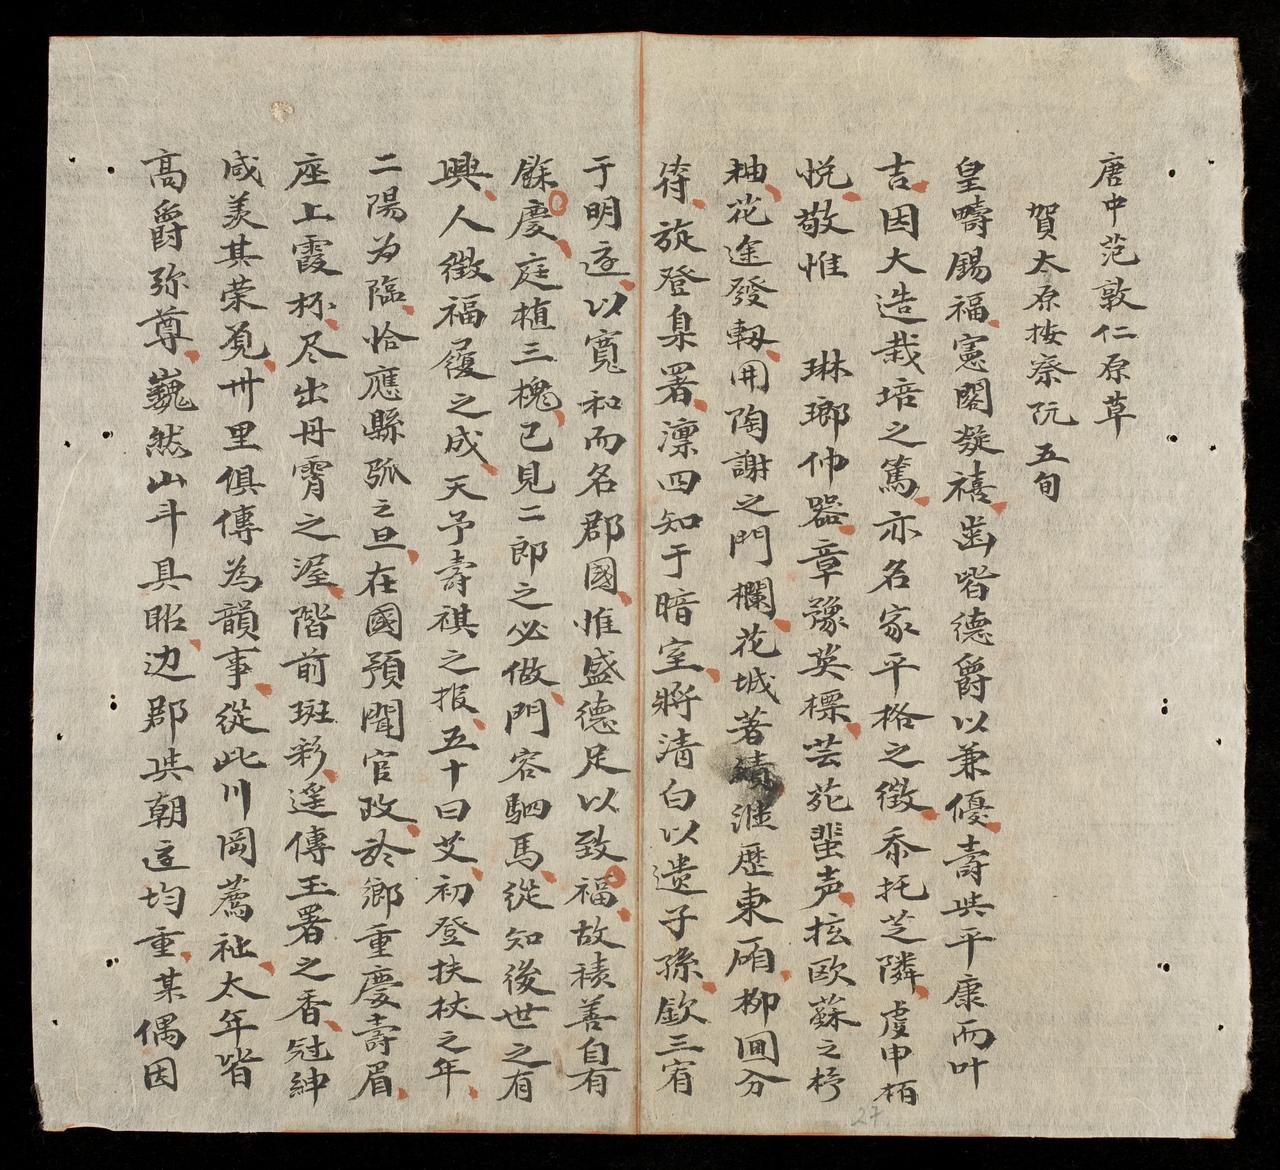 唐中范敦仁原草
賀太原按察阮五旬
皇疇錫福憲閣凝禧齒皆德爵以兼優壽共平康而叶
吉因大造栽培之篤亦名家平格之徵忝托芝隣虔申栢
悦敬惟 琳瑯伸器章豫英標芸苑蜚声抎歐蘇之杼
柚花途發軔開陶謝之門欄花城著績涖歷東廂柳圃分
符旋登臬署凜四知于暗室將清白以遺子孫欽三宥
于明廷以寬和而名郡國惟盛德足以致福故積善自有
餘慶庭植三槐已見二郎之必做門容駟馬從知後世之有
興人徵福履之成天予壽祺之报五十曰艾初登扶杖之年
二陽为臨恰應縣弧之旦在國預聞官政於鄉重慶壽眉
座上霞杯尽出丹霄之渥階前斑彩遥傳玉署之香冠紳
咸羡其荣覓卅里俱傳為韻事從此川岡薦祉太年皆
高爵弥尊巍然山斗具眙边郡共朝廷均重某偶因
27